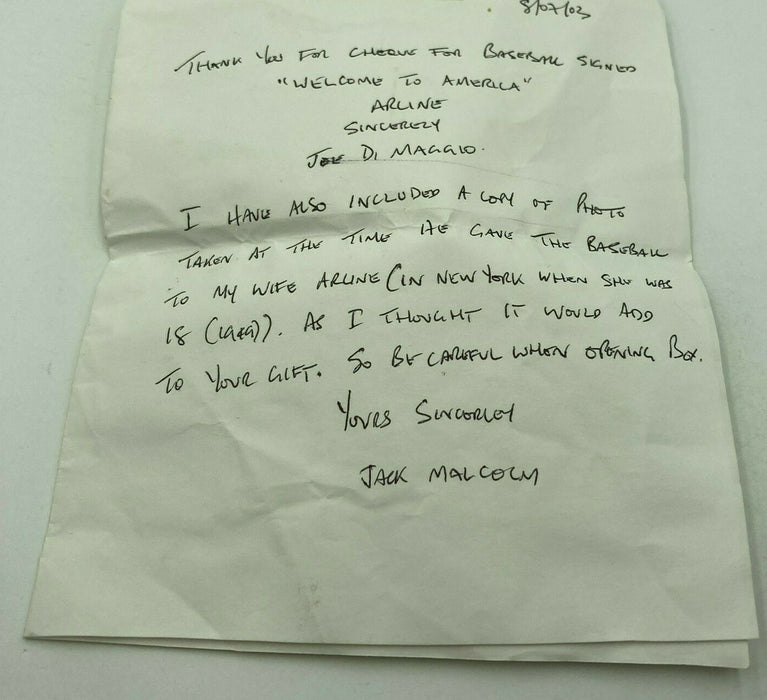 8/07/03
THANK YOU FOR CHEQUE FOR BASEBALL SIGNED
"WELCOME TO AMERICA"
ARLINE
SINCERELY
JOE DI MAGGIO.
I HAVE ALSO INCLUDED A COPY OF PHOTO
TAKEN AT THE TIME HE GAVE THE BASEBALL
TO MY WIFE ARLINE (IN NEW YORK WHEN SHE WAS
18 (1949)). AS I THOUGHT IT WOULD ADD
TO YOUR GIFT. SO BE CAREFUL WHEN OPENING BOX.
YOURS SINCERLEY
JACK MALCOLM